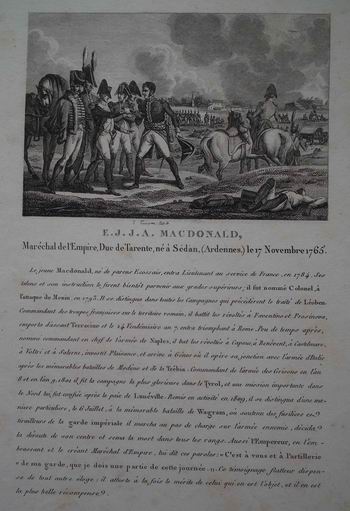 E. J. J. A. MACDONALD,
Maréchal de l'Empire, Duc de Tarente, né à Sédan, (Ardennes,) le 17 Novembre 1765.
Le jeune Macdonald, né de parens Ecossais, entra Lieutenant au service de France, en 1784. Ses
talens et son instruction le firent bientôt parvenir aux grades supérieurs; il fut nommé Colonel, à
l'attaque de Menin, en 1793. Il se distingua dans toutes les Campagnes qui précédèrent le traité de Léoben.
Commandant des troupes françaises sur le territoire romain, il battit les révoltés à Frosinone,
emporta d'assaut Terracine et le 14 Vendémiaire an 7, entra triomphant à Rome. Peu de temps après,
nommé commandant en chef de l'armée de Naples, il bat les révoltés à Capoue, à Bénévent, à
à et à Salerne, investit Plaisance, et arrive à Gênes où il opère sa jonction avec l'armée d'Italie
après les mémorables batailles de Modène et de la Trébia. Commandant de l'armée des Grisons en l'an
8 et en l'an 9, 1801 il fit la campagne la plus glorieuse dans le Tyrol, et une mission importante dans
le Nord lui fut confiée après la paix de Lunéville. Remis en activité en 1809, il se distingua d'une ma-
nière particulière, le 6 Juillet, à la mémorable bataille de Wagram, où soutenu des fusiliers et
tirailleurs de la garde impériale il marcha au pas de charge sur l'armée ennemie, décida
la déroute de son centre et sema la mort dans tous les rangs. Aussi l'Empereur, en l'em-
brassant et le créant Maréchal d'Empire, lui dit ces paroles: "C'est à vous et à l'artillerie
"de ma garde, que je dois une partie de cette journée.". Ce témoignage flatteur dispen-
se de tout autre éloge; il atteste à la fois le mérite de celui qui en est l'objet, et il en est
la plus belle récompense.